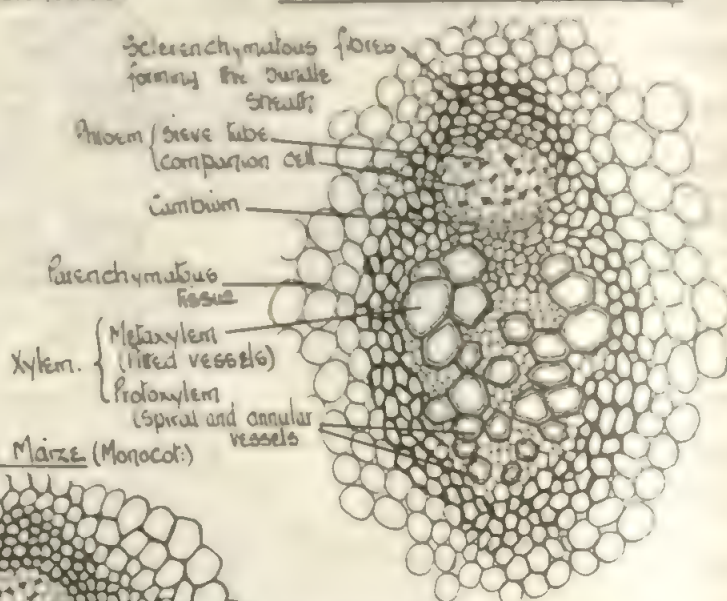 Sclerenchymatous fibres
forming the bundle
sheath
Phloem { sieve tube
companion cell
Cambium
Parenchymatous
tissue
Xylem. { Metaxylem
(Pitted vessels)
Protoxylem
(Spiral and annular
vessels
Maize (Monocot:)